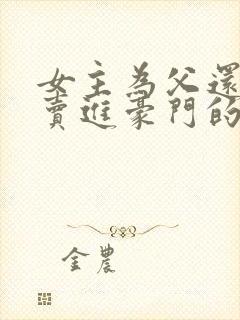 女主為父還
賣進豪門的
金農